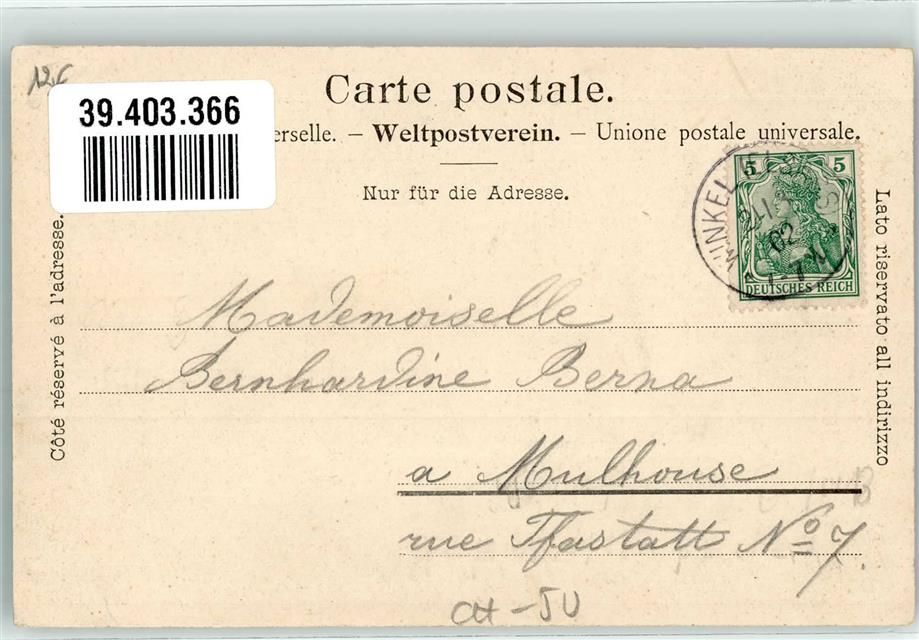 Carte postale.
39.403.366
erselle. – Weltpostverein. – Unione postale universale.
Nur für die Adresse.
5 5
DEUTSCHES REICH
WINKEL
02
Côté réservé à l'adresse.
Lato riservato all indirizzo
Mademoiselle
Bernhardine Berna
a Mulhouse
rue Pfastatt No 7.
CH - JU